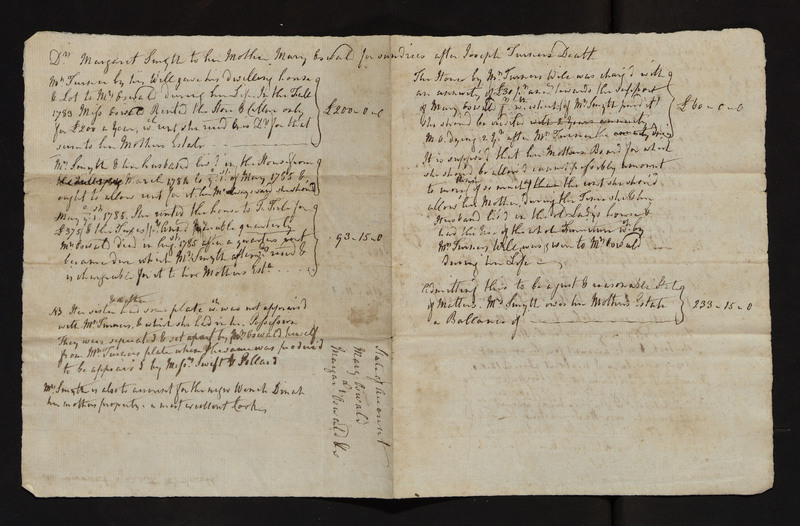 Dr. Margaret Smyth to her Mother Mary Oswald for sundries after Joseph Turners Death
Mr. Turner by his Will gave his dwelling house
& Lot to Mrs Oswald during her Life. In the Fall
1783 Miss Oswald Rented the Store & Cellar only
for £200 a year, wch rent she recd & is Dr. for that
sum to her Mothers Estate
£200-0-0
Mr. Smyth & her husband lived in the House from
March 1784 to of May 1785 &
ought to allow rent for it her
May 1785. She rented the house to T. for
£375 & the Taxes payable quarterly
Mrs Oswald died in Augt. 1785 after a quarters rent
became due which Mrs Smyth afterwds recd &
is chargeable for it to her Mothers Este
93-15-0
NB Her sister had some plate wh. was not appraised
with Mr. Turners, & which she held in her Possession
They were separated & set apart by Mrs Oswald herself
from Mr. Turners plate when the same was produced
to be appraised by Messrs. Swift & Pollard
Mrs Smyth is also to account for the negro Wench Dinah
her mothers property. a most excellent Cook
State of Account
Mary Oswald
&
Margar. Oswald &c
The Store by Mr. Turners Will was charg'd with
an annuity of £30 p. ann towards the support
of Mary Oswald wh. Mrs Smyth paid it
she should be credited
M.O. dying 2 yrs after Mr. Turner
£60-0-0
It is supposed that her Mothers Board for which
she should be allow'd cannot possibly amount
to more if so much than the rent she should
allow her Mother, during the Time she & her
Husband liv'd in the old Lady's house &
had the Use of the whole Furniture wh. by
Mr. Turners Will was given to Mrs Oswald
during her Life
Admitting this to be a just & reasonable State
of Matters. Mrs Smyth owes her Mothers Estate
a Ballance of
233-15-0